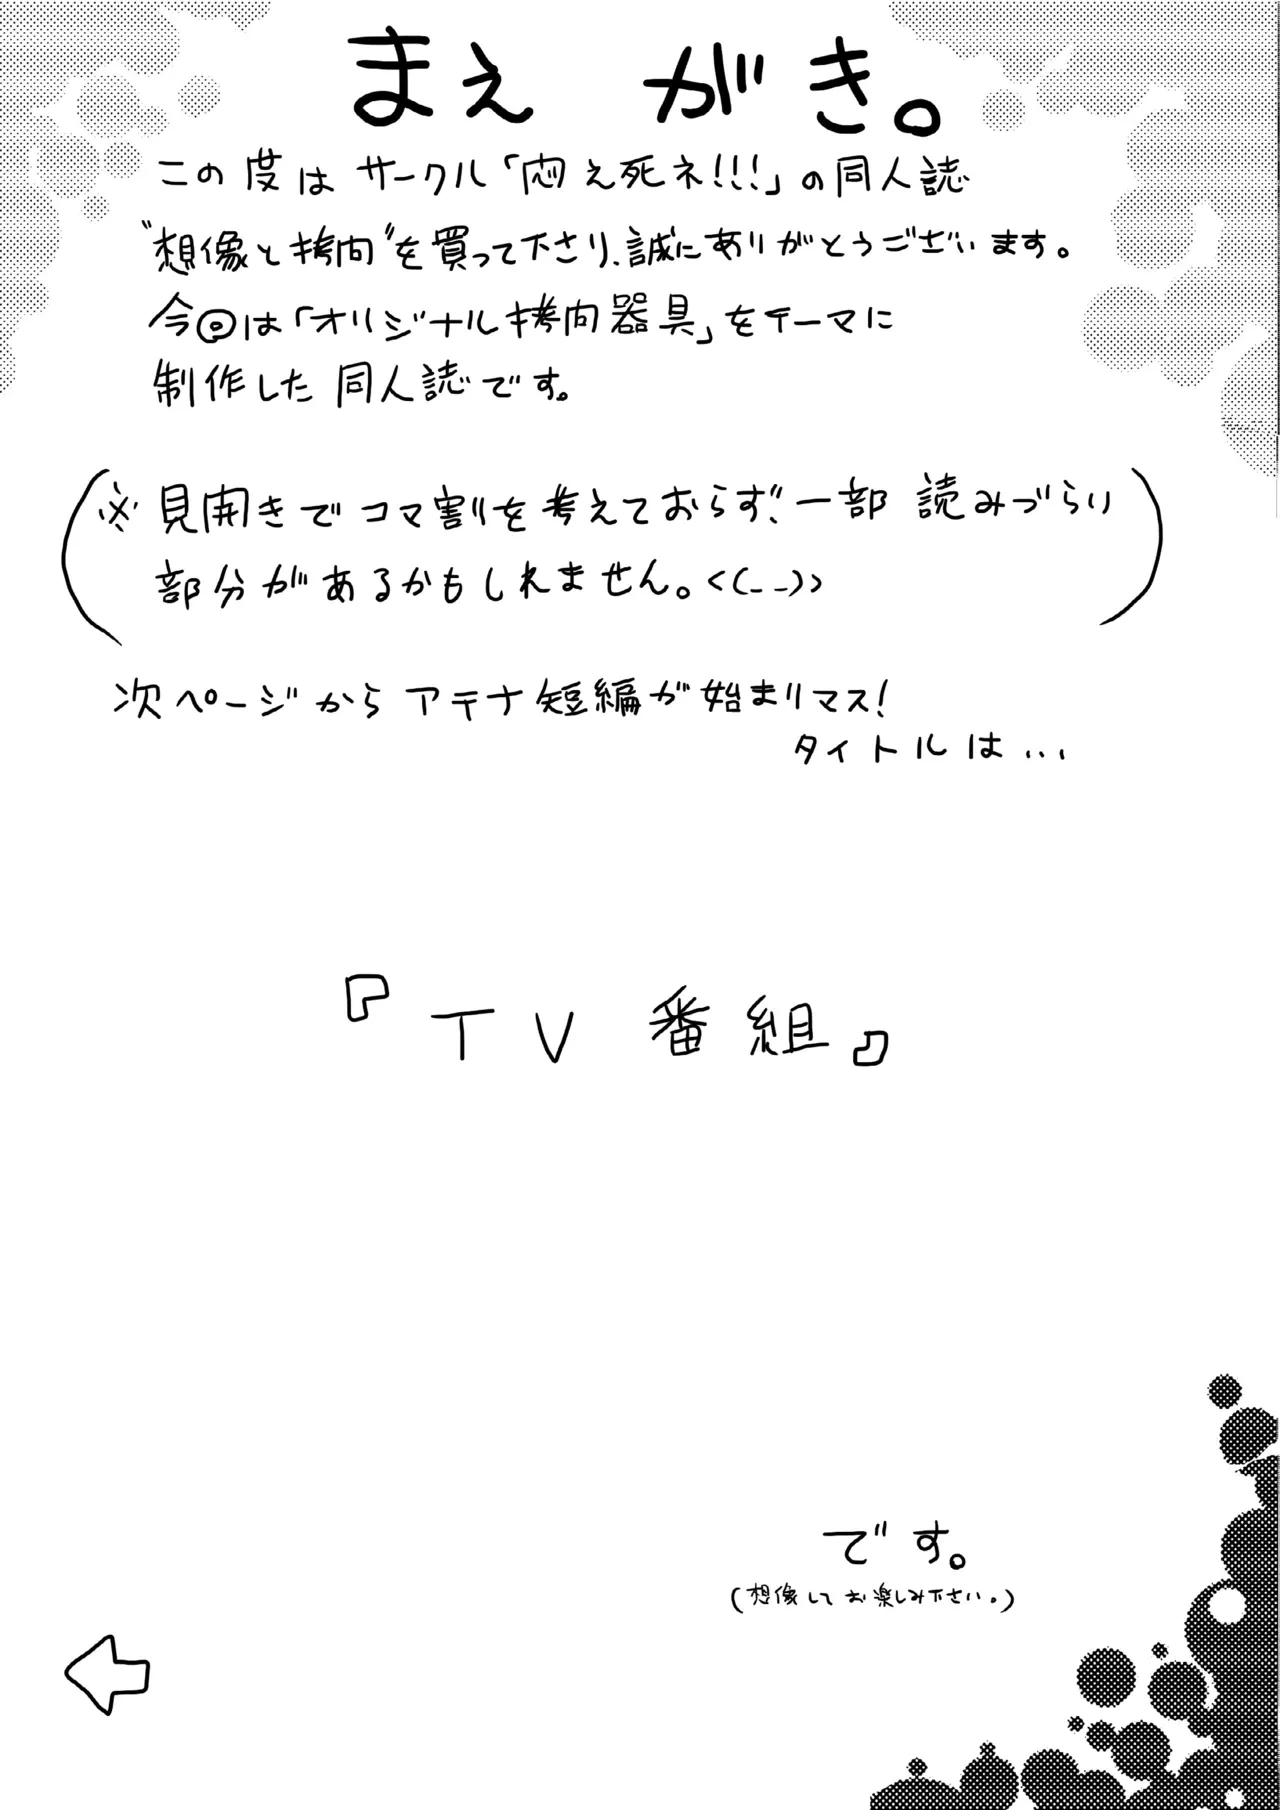 まえがき。
この度はサークル「悶え死ネ!!!」の同人誌
"想像と拷向"を買って下さり、誠にありがとうございます。
今回は「オリジナル拷向器具」をテーマに
制作した同人誌です。
(※見開きでコマ割りを考えておらず、一部読みづらい
部分があるかもしれません。<(_ _)>)
次ページからアテナ短編が始まりマス!
タイトルは...
『TV番組』
です。
(想像してお楽しみ下さい。)